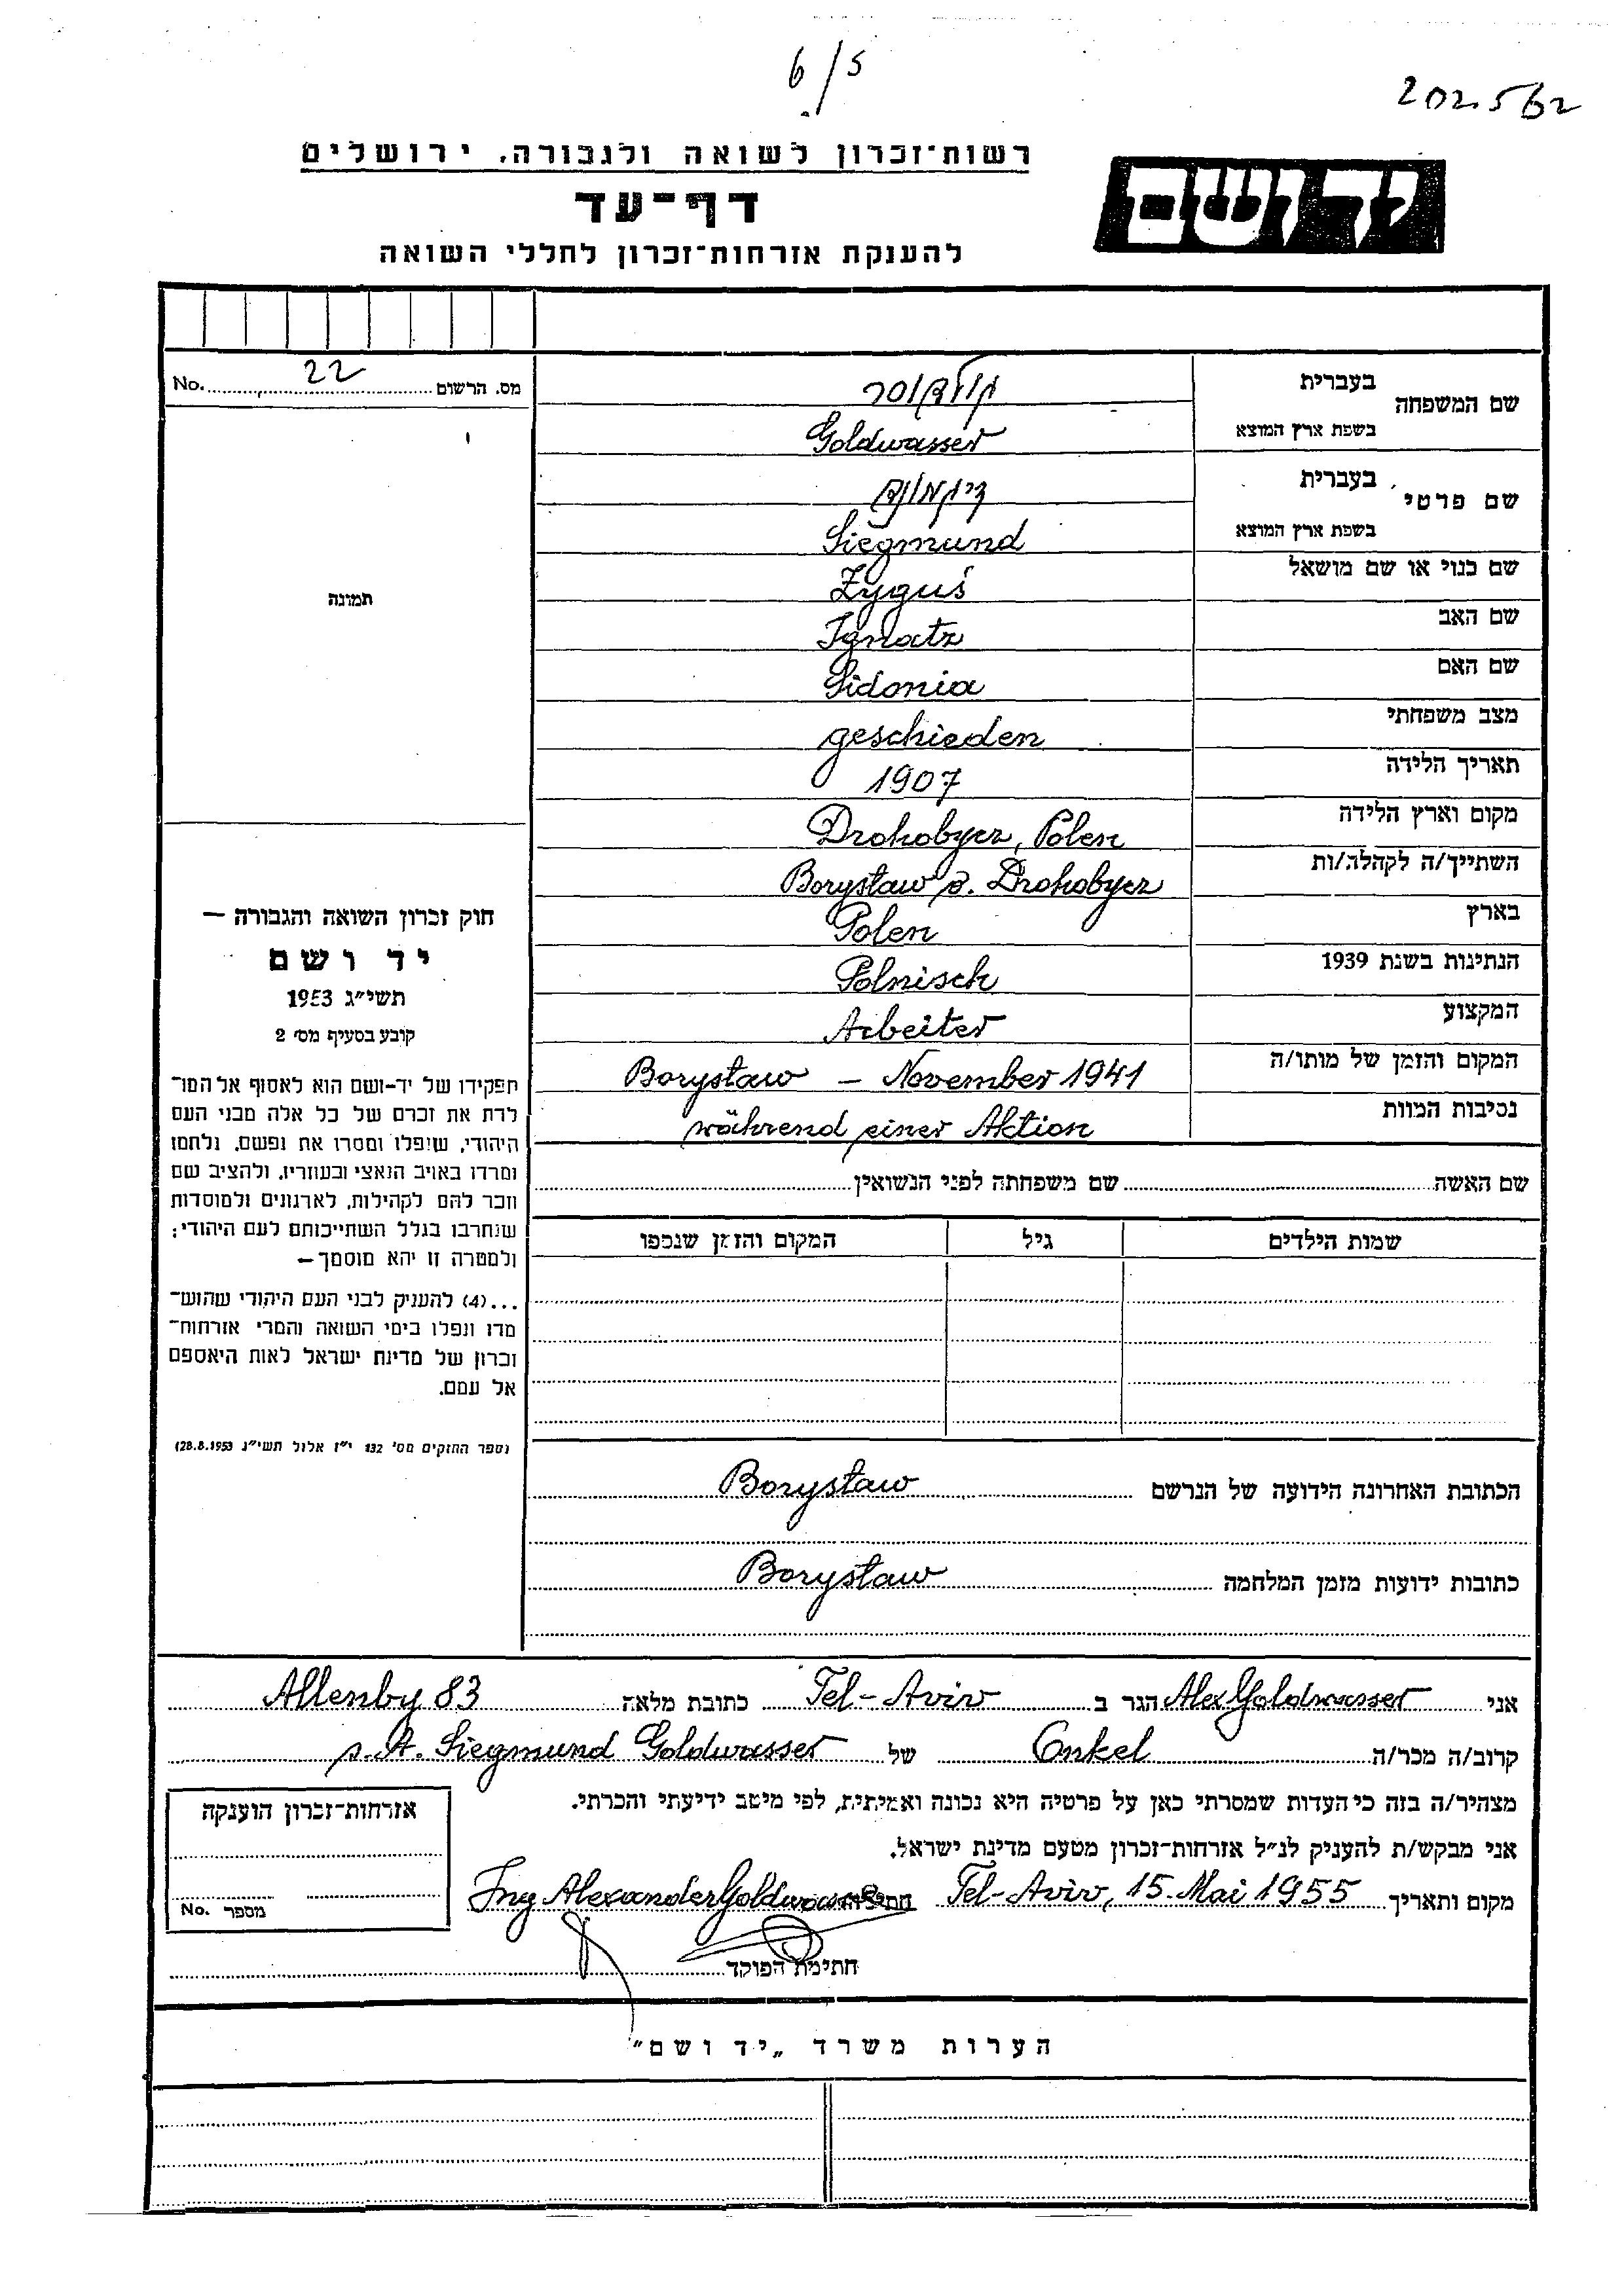 6/5
202562
רשות־זכרון לשואה ולגבורה, ירושלים
יד ושם
דף־עד
להענקת אזרחות־זכרון לחללי השואה
מס. הרשום 22 No.
תמונה
חוק זכרון השואה והגבורה —
יד ושם
תשי״ג 1953
קובע בסעיף מס׳ 2
תפקידו של יד-ושם הוא לאסוף אל המו־
לדת את זכרם של כל אלה מבני העם
היהודי, שנפלו ומסרו את נפשם, נלחמו
ומרדו באויב הנאצי ובעוזריו, ולהציב שם
וזכר להם לקהילות, לארגונים ולמוסדות
שנחרבו בגלל השתייכותם לעם היהודי;
ולמטרה זו יהא מוסמך—
...(4) להעניק לבני העם היהודי שהוש־
מדו ונפלו בימי השואה והמרי אזרחות־
זכרון של מדינת ישראל לאות היאספם
אל עמם.
(ספר החוקים מס׳ 132 י״ז אלול תשי״ג 28.8.1953)
שם המשפחה בעברית גולדווסר
בשפת ארץ המוצא Goldwasser
שם פרטי בעברית זיגמונד
בשפת ארץ המוצא Siegmund
שם כנוי או שם מושאל Zyguś
שם האב Ignatz
שם האם Sidonia
מצב משפחתי geschieden
תאריך הלידה 1907
מקום וארץ הלידה Drohobycz, Polen
השתייך/ה לקהלה/ות Borysław b. Drohobycz
בארץ Polen
הנתינות בשנת 1939 Polnisch
המקצוע Arbeiter
המקום והזמן של מותו/ה Borysław – November 1941
נסיבות המוות während einer Aktion
שם האשה שם משפחתה לפני הנשואין
שמות הילדים גיל המקום והזמן שנספו
הכתובת האחרונה הידועה של הנרשם Borysław
כתובות ידועות מזמן המלחמה Borysław
אני Alex Goldwasser הגר ב Tel-Aviv כתובת מלאה Allenby 83
קרוב/ה מכר/ה Onkel של Siegmund Goldwasser
מצהיר/ה בזה כי העדות שמסרתי כאן על פרטיה היא נכונה ואמיתית, לפי מיטב ידיעתי והכרתי.
אני מבקש/ת להעניק לנ״ל אזרחות־זכרון מטעם מדינת ישראל.
מקום ותאריך Tel-Aviv, 15. Mai 1955 חתימה Ing Alexander Goldwasser
חתימת הפוקד
אזרחות־זכרון הוענקה
מספר No.
הערות משרד „יד ושם"